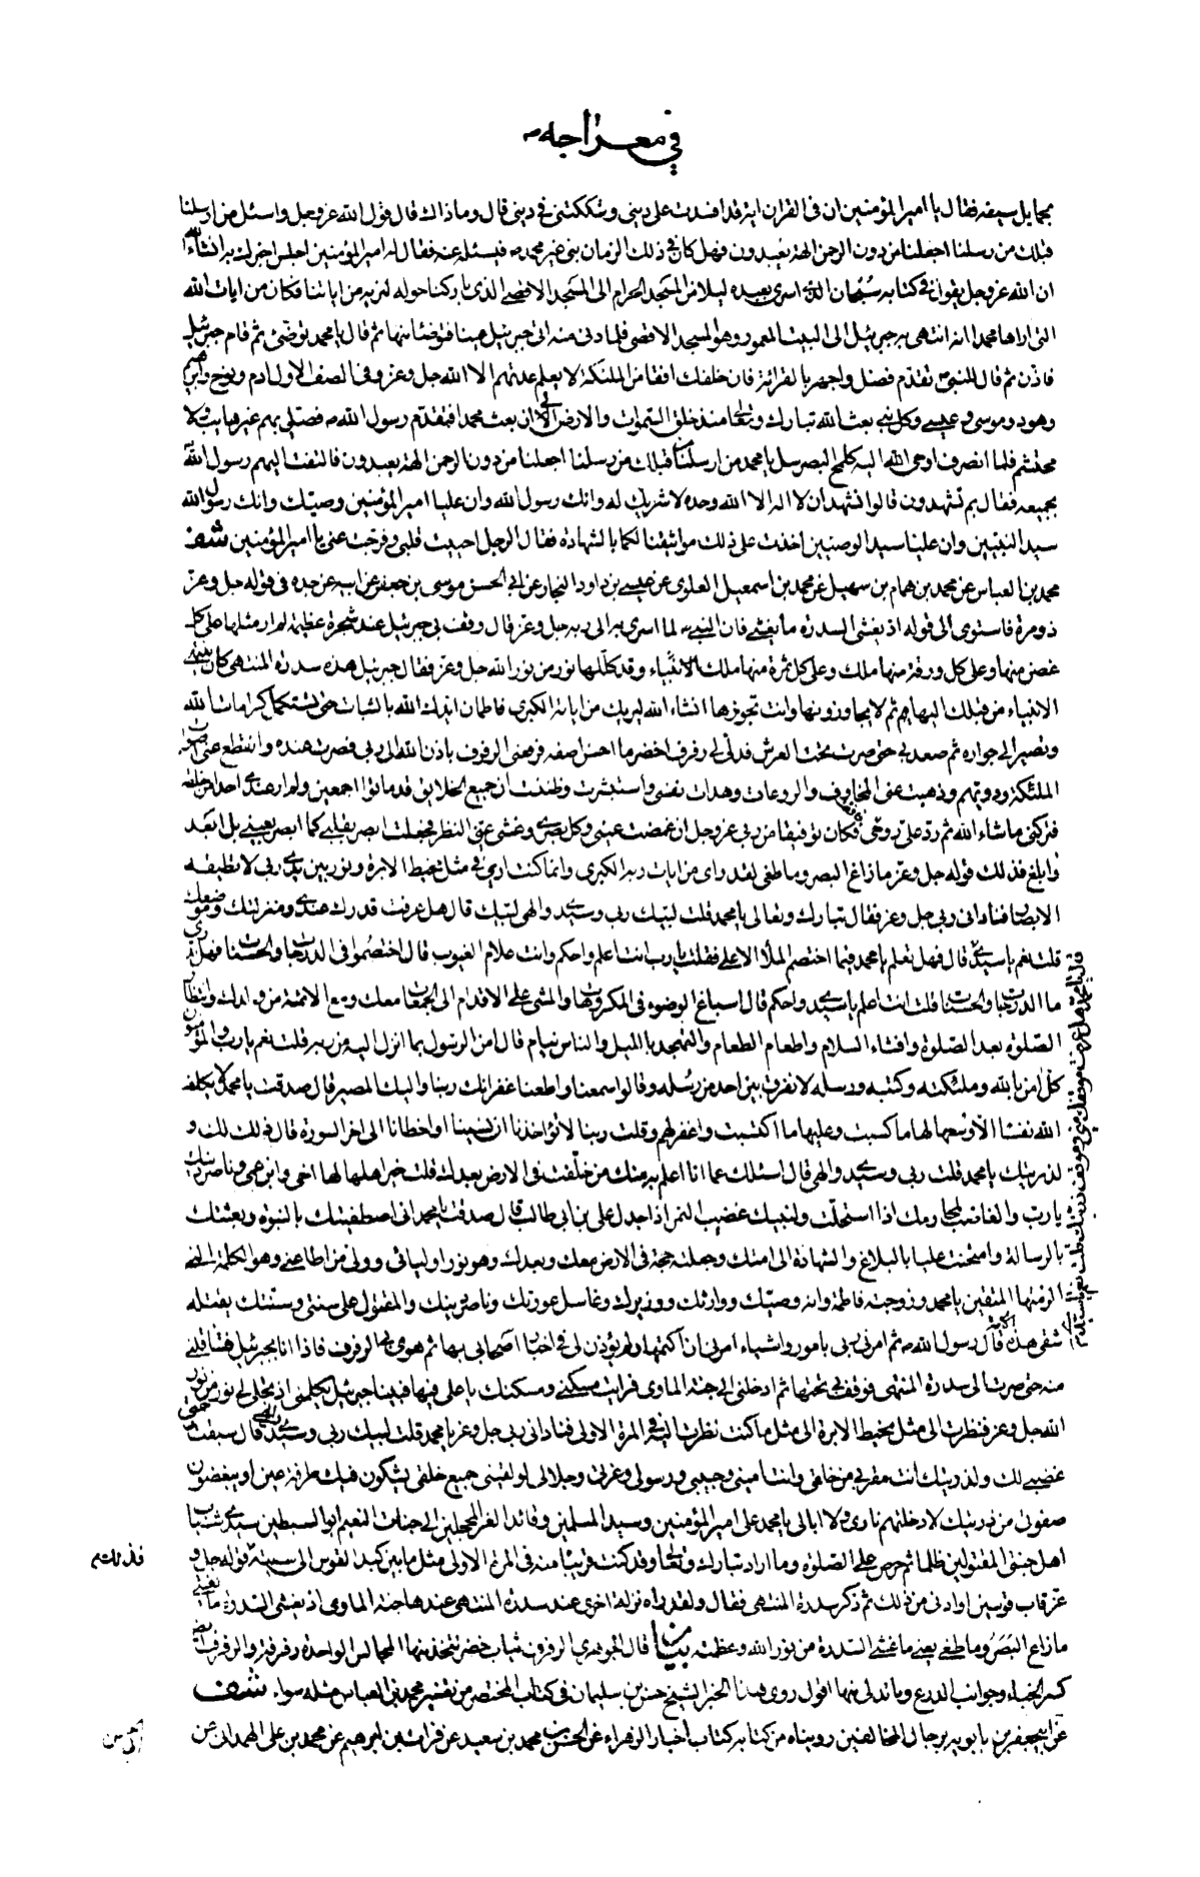 في معراجه ص
بحمايل سيفه فقال يا امير المؤمنين ان في القران اية قد افسدت على ديني وشككتني في ديني قال وما ذاك قال قول الله عز وجل واسئل من ارسلنا
قبلك من رسلنا اجعلنا من دون الرحمن الهة يعبدون فهل كان في ذلك الزمان نبي غير محمد ص فيسئله عنه فقال له امير المؤمنين اجلس اخبرك به انشاء الله
ان الله عز وجل يقول في كتابه سبحان الذي اسرى بعبده ليلا من المسجد الحرام الى المسجد الاقصى الذي باركنا حوله لنريه من اياتنا فكان من ايات الله
التي اراها محمدا انه انتهى به جبرئيل الى البيت المعمور وهو المسجد الاقصى فلما دنى منه اتى جبرئيل عينا فتوضأ منها ثم قال يا محمد توضئ ثم قام جبرئيل
فاذن ثم قال للنبي ص تقدم فصل واجهر بالقرائة فان خلفك افقا من الملئكة لا يعلم عدتهم الا الله جل وعز وفي الصف الاول ادم ونوح وابرهيم
وهود وموسى وعيسى وكل نبي بعث الله تبارك وتعالى منذ خلق السموات والارض الى ان بعث محمدا فتقدم رسول الله ص فصلى بهم غير هايب ولا
محتشم فلما انصرف اوحى الله اليه كلمح البصر سل يا محمد من ارسلنا قبلك من رسلنا اجعلنا من دون الرحمن الهة يعبدون فالتفت اليهم رسول الله
بجميعه فقال بم تشهدون قالوا نشهد ان لا اله الا الله وحده لا شريك له وانك رسول الله وان عليا امير المؤمنين وصيك وانك رسول الله
سيد النبيين وان عليا سيد الوصيين اخذت على ذلك مواثيقنا لكما بالشهادة فقال الرجل احييت قلبي وفرجت عني يا امير المؤمنين شف
محمد بن العباس عن محمد بن همام بن سهيل عن محمد بن اسمعيل العلوي عن عيسى بن داود النجار عن ابي الحسن موسى بن جعفر عن ابيه عن جده في قوله جل وعز
ذو مرة فاستوى الى قوله اذ يغشى السدرة ما يغشى فان النبي ص لما اسري به الى ربه جل وعز قال وقف بي جبرئيل عند شجرة عظيمة لم ار مثلها على كل
غصن منها وعلى كل ورقة منها ملك وعلى كل ثمرة منها ملك وقد كللها نور من نور الله جل وعز فقال جبرئيل هذه سدرة المنتهى كان ينتهى
الانبياء من قبلك اليها ثم لا يجاوزونها وانت تجوزها انشاء الله ليريك من اياته الكبرى فاطمان ايدك الله بالثبات حتى تستكمل كرامات الله
وتصير الى جواره ثم صعد بي حتى صرت تحت العرش فدلي لي رفرف اخضر ما احسن اصفه فرفعني الرفرف باذن الله الى ربي فصرت عنده وانقطع عني اصوات
الملئكة ودويهم وذهبت عني المخاوف والروعات وهدات نفسي واستبشرت وظننت ان جميع الخلائق قد ماتوا اجمعين ولم ار عندي احدا من خلقه
فتركني ما شاء الله ثم رد علي روحي فافقت فكان توفيقا من ربي عز وجل ان غمضت عيني وكل بصري وغشي عني النظر فجعلت ابصر بقلبي كما ابصر بعيني بل ابعد
وابلغ فذلك قوله جل وعز ما زاغ البصر وما طغى لقد راى من ايات ربه الكبرى وانما كنت ارى في مثل مخيط الابرة ونور بين يدي ربي لا تطيقه
الابصار فناداني ربي جل وعز فقال تبارك وتعالى يا محمد قلت لبيك ربي وسيدي والهي لبيك قال هل عرفت قدرك عندي ومنزلتك وموضعك
قلت نعم يا سيدي قال فهل تعلم يا محمد فيما اختصم الملأ الاعلى فقلت يا رب انت اعلم واحكم وانت علام الغيوب قال اختصموا في الدرجات والحسنات فهل تدري
ما الدرجات والحسنات قلت انت اعلم يا سيدي واحكم قال اسباغ الوضوء في المكروهات والمشي على الاقدام الى الجمعات معك ومع الائمة من ولدك وانتظار
الصلوة بعد الصلوة وافشاء السلام واطعام الطعام والتهجد بالليل والناس نيام قال امن الرسول بما انزل اليه من ربه قلت نعم يا رب والمؤمنون
كل امن بالله وملئكته وكتبه ورسله لا نفرق بين احد من رسله وقالوا سمعنا واطعنا غفرانك ربنا واليك المصير قال صدقت يا محمد لا يكلف
الله نفسا الا وسعها لها ما كسبت وعليها ما اكتسبت واغفر لهم وقلت ربنا لا تؤاخذنا ان نسينا او اخطانا الى اخر السورة قال ذلك لك و
لذريتك يا محمد قلت ربي وسيدي والهي قال اسئلك عما انا اعلم به منك من خلفت في الارض بعدك قلت خير اهلها لها اخي وابن عمي وناصر دينك
يا رب والغاضب لمحارمك اذا استحلت ولنبيك غضب النمر اذا جدل علي بن ابي طالب قال صدقت يا محمد اني اصطفيتك بالنبوة وبعثتك
بالرسالة وامتحنت عليا بالبلاغ والشهادة الى امتك وجعلته حجة في الارض معك وبعدك وهو نور اوليائي وولي من اطاعني وهو الكلمة التي
الزمتها المتقين يا محمد وزوجته فاطمة وانه وصيك ووارثك ووزيرك وغاسل عورتك وناصر دينك والمقتول على سنتي وسنتك يقتله
شقي هذه الامة قال رسول الله ص ثم امرني ربي بامور واشياء امرني ان اكتمها ولم يؤذن لي في اخبار اصحابي بها ثم هوى بي الرفرف فاذا انا بجبرئيل فتناولني
منه حتى صرت الى سدرة المنتهى فوقف بي تحتها ثم ادخلني الى جنة الماوى فرايت مسكني ومسكنك يا علي فيها فبينا جبرئيل يكلمني اذ تجلى لي نور من نور
الله جل وعز فنظرت الى مثل مخيط الابرة الى مثل ما كنت نظرت اليه في المرة الاولى فناداني ربي جل وعز يا محمد قلت لبيك ربي وسيدي والهي قال سبقت رحمتي
غضبي لك ولذريتك انت مقربي من خلقي وانت اميني وحبيبي ورسولي وعزتي وجلالي لو لقيني جميع خلقي يشكون فيك طرفة عين او يبغضون
صفوتي من ذريتك لادخلتهم ناري ولا ابالي يا محمد علي امير المؤمنين وسيد المسلمين وقائد الغر المحجلين الى جنات النعيم ابو السبطين سيدي شباب
اهل جنتي المقتولين ظلما ثم حرض على الصلوة وما اراد تبارك وتعالى وقد كنت قريبا منه في المرة الاولى مثل ما بين كبد القوس الى سيته قوله جل و
عز قاب قوسين او ادنى من ذلك ثم ذكر سدرة المنتهى فقال ولقد راه نزلة اخرى عند سدرة المنتهى عندها جنة الماوى اذ يغشى السدرة ما يغشى
ما زاغ البصر وما طغى يعني ما غشي السدرة من نور الله وعظمته بيان قال الجوهري الرفرف ثياب خضر تتخذ منها المجالس الواحدة رفرفة والرفرف ايضا
كسر الخباء وجوانب الدرع وما تدلى منها اقول روى هذا الخبر الشيخ حسن بن سليمان في كتاب المختصر من تفسير محمد بن العباس مثله سواء شف
عن ابي جعفر بن بابويه برجال المخالفين رويناه من كتابه كتاب اخبار الزهراء عن الحسن بن محمد بن سعيد عن فرات بن ابرهيم عن محمد بن علي الهمداني عن
قال يا محمد هل عرفت موقفك مني وموقف ذريتك قلت نعم يا سيدي
فذلك م